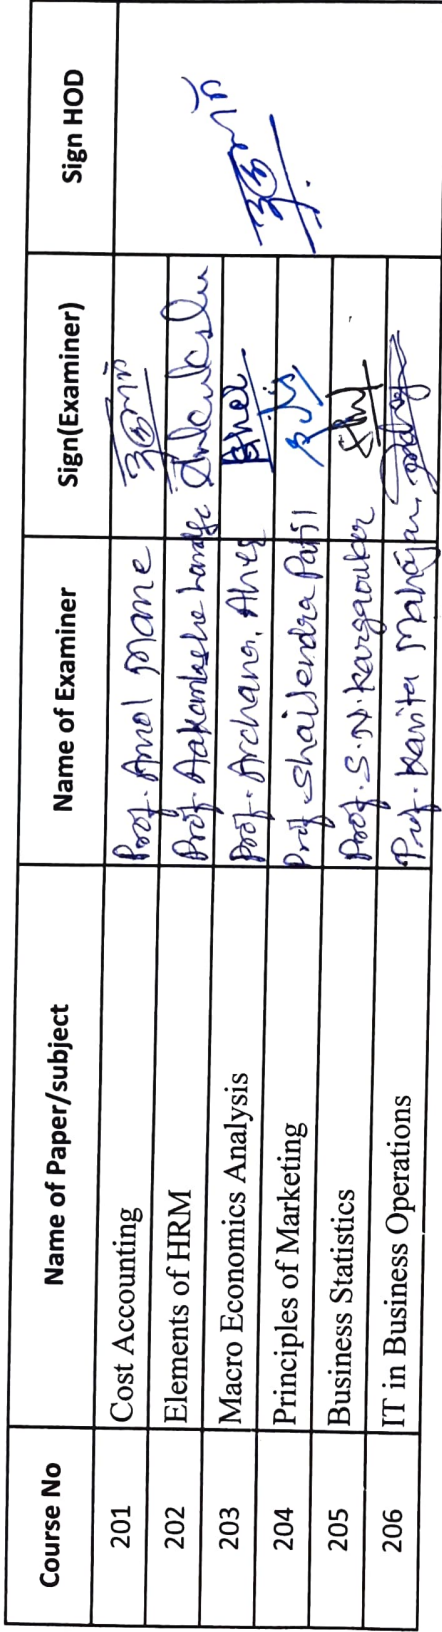 Course No Name of Paper/subject Name of Examiner Sign(Examiner) Sign HOD
201 Cost Accounting Prof. Amol Mane
202 Elements of HRM Prof. Aakanksha
203 Macro Economics Analysis Prof. Archana
204 Principles of Marketing Prof. Shailendra Patil
205 Business Statistics Prof. S.N.
206 IT in Business Operations Prof. Kavita Mahajan